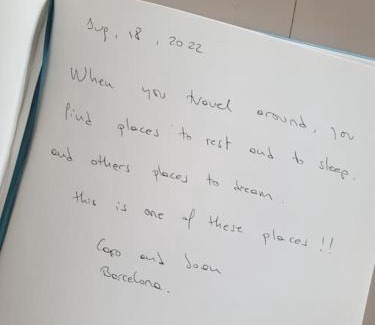 Sep, 18, 2022
When you travel around, you
find places to rest and to sleep.
and others places to dream.
this is one of these places!!
Caro and Joan
Barcelona.